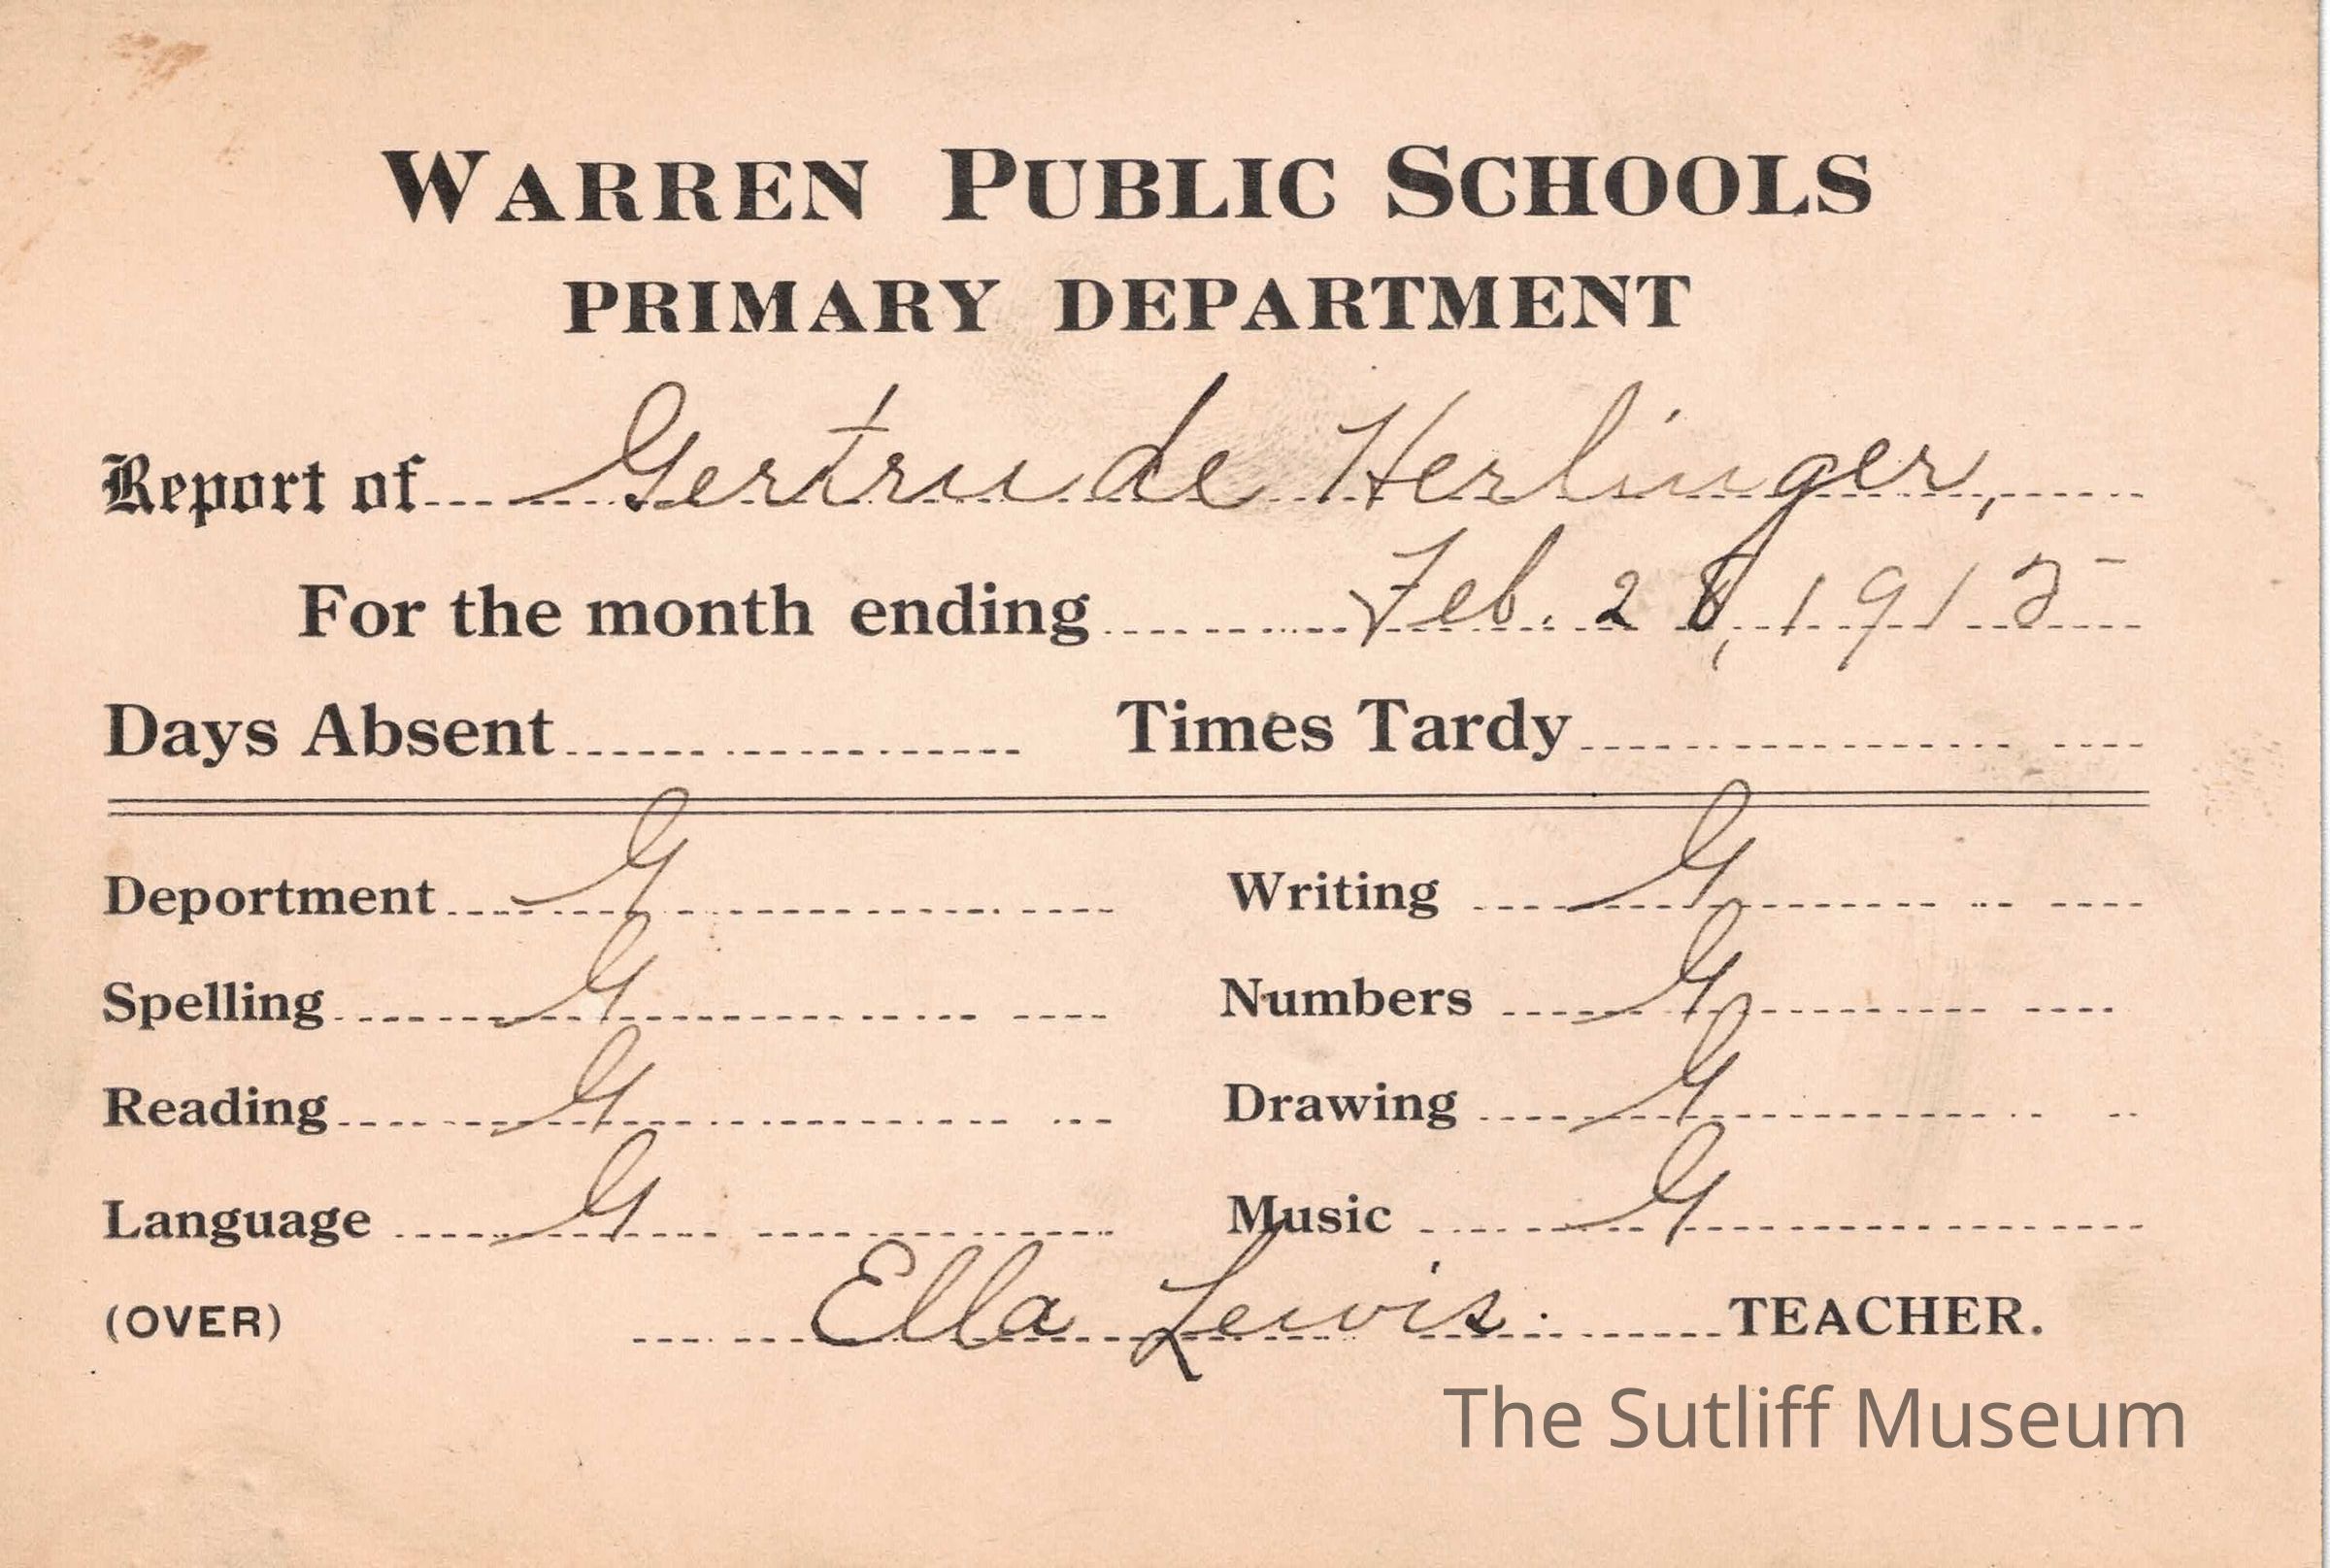 WARREN PUBLIC SCHOOLS
PRIMARY DEPARTMENT
Report of Gertrude Herlinger,
For the month ending Feb. 28, 1915
Days Absent Times Tardy
Deportment G Writing G
Spelling G Numbers G
Reading G Drawing G
Language G Music G
(OVER) Ella Lewis. TEACHER.
The Sutliff Museum